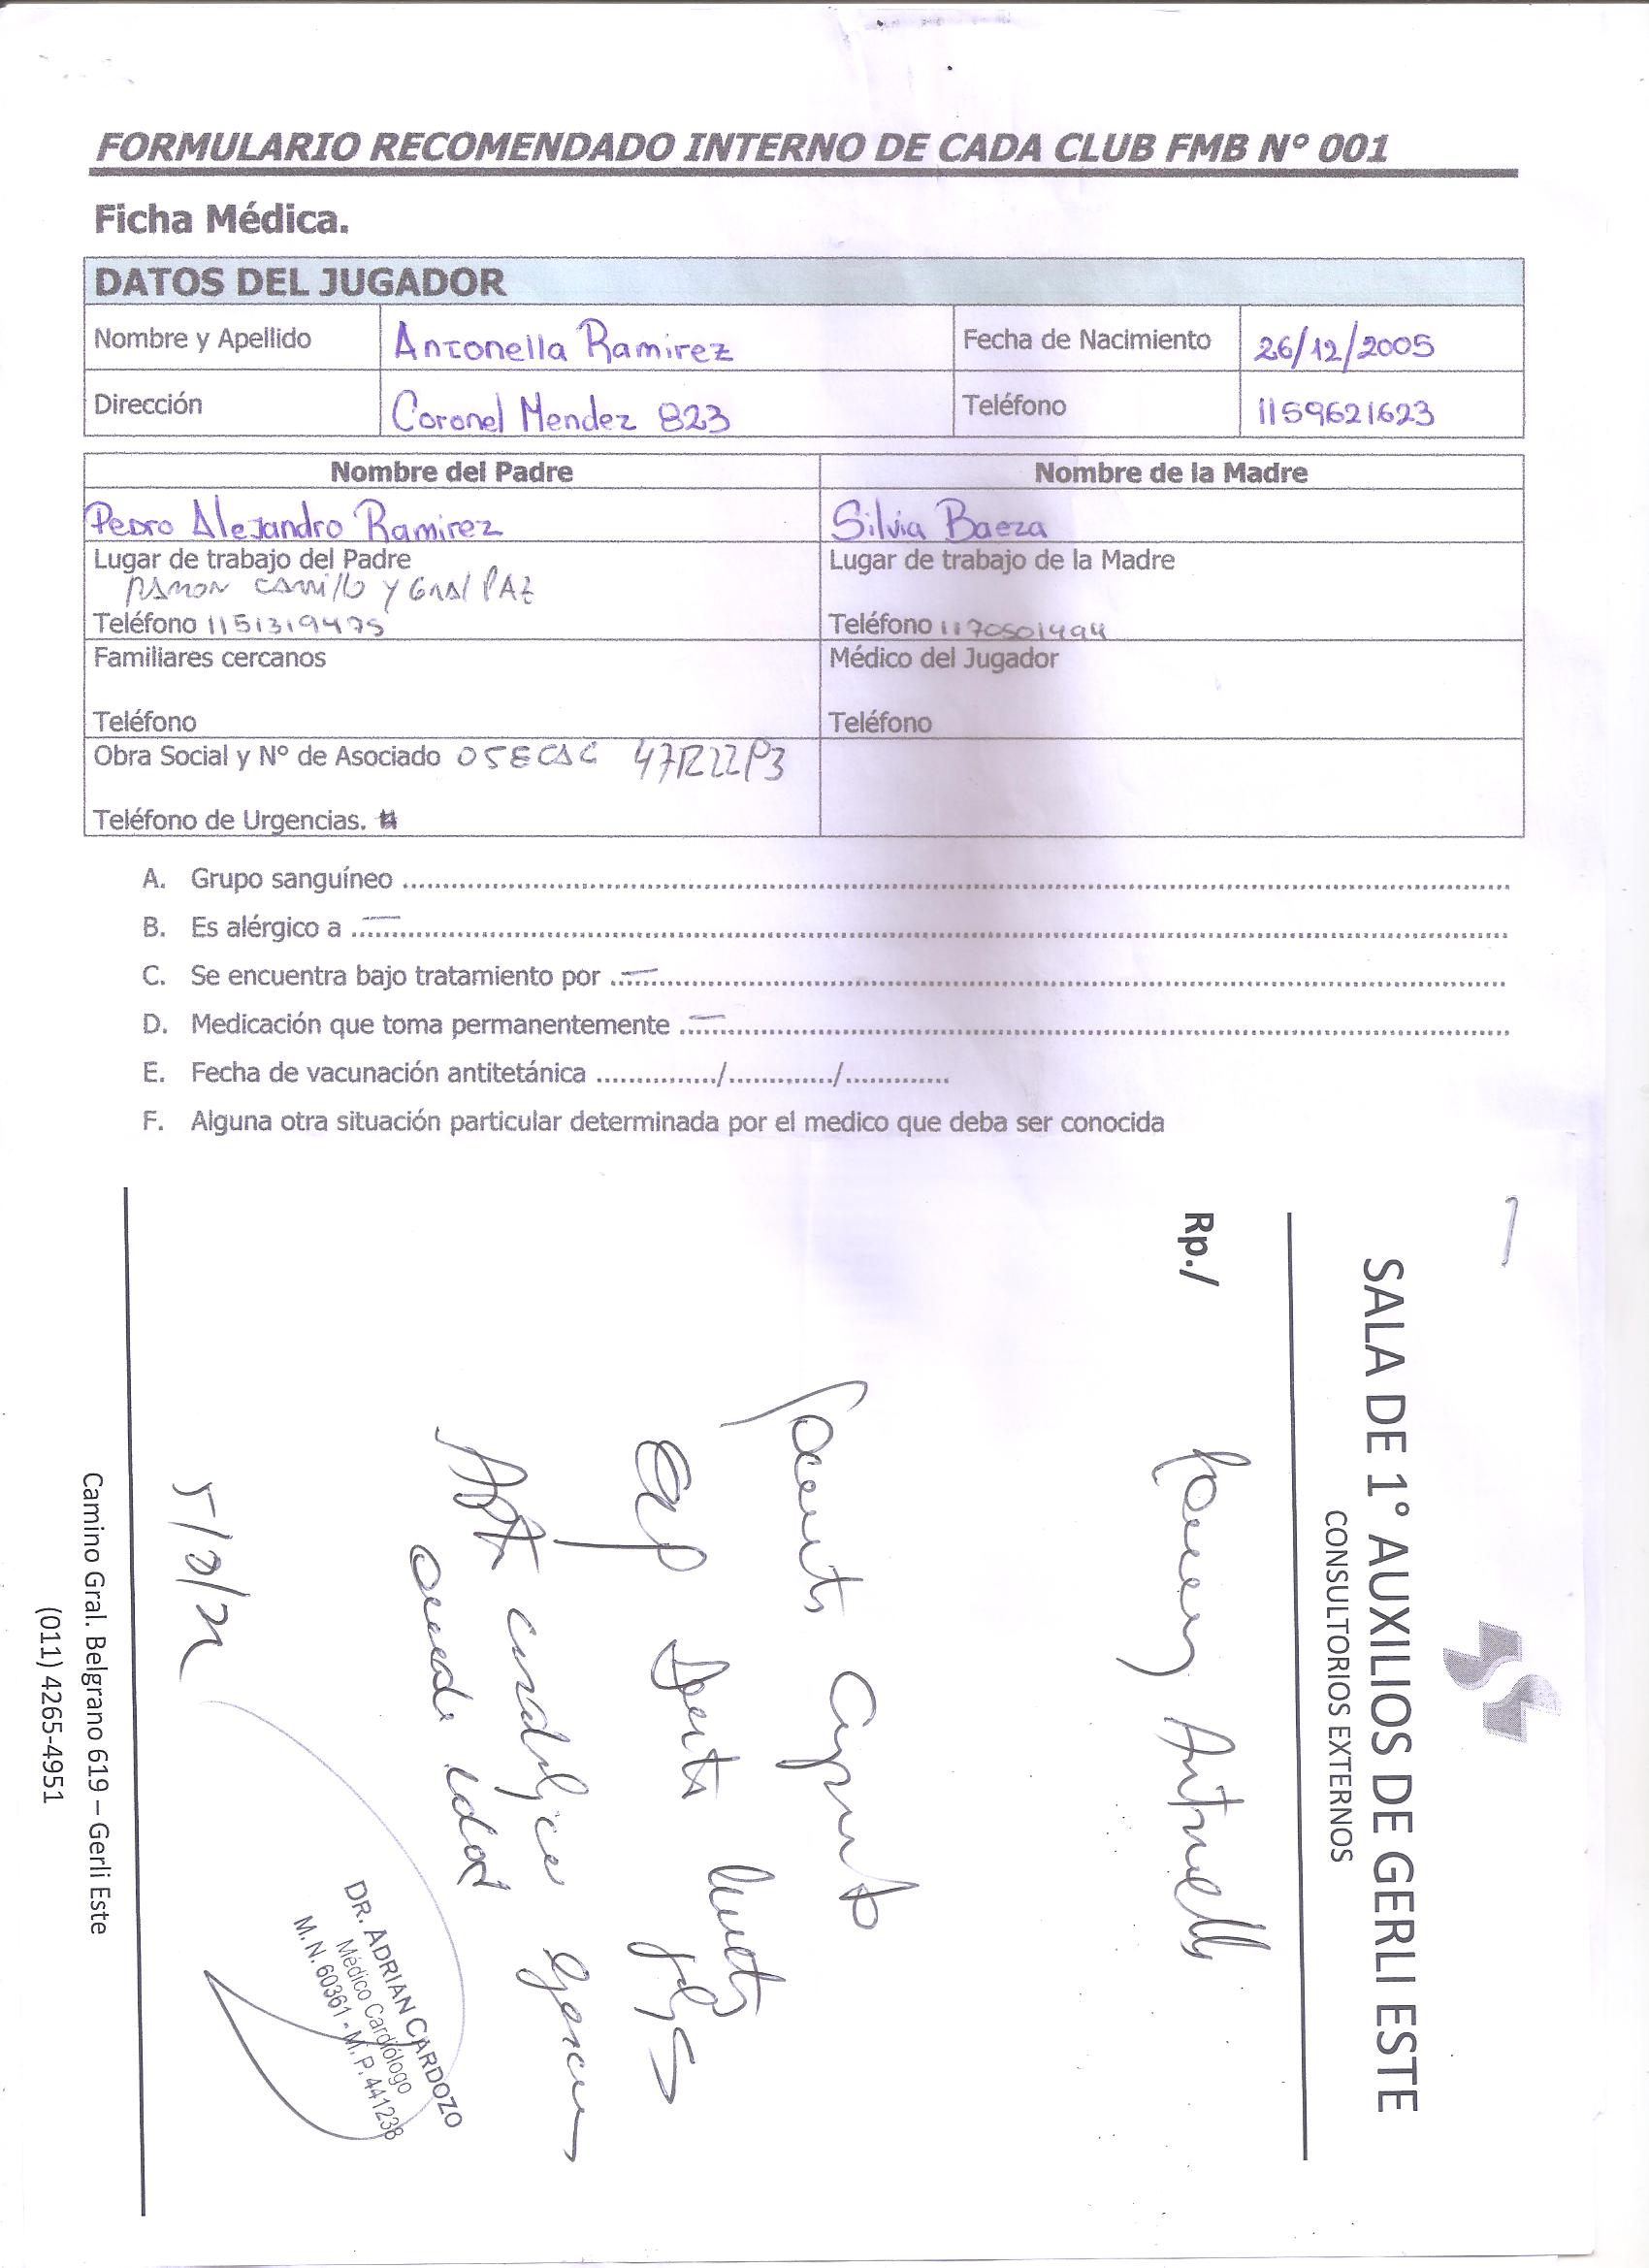 FORMULARIO RECOMENDADO INTERNO DE CADA CLUB FMB N° 001
Ficha Médica.
DATOS DEL JUGADOR
Nombre y Apellido Antonella Ramirez Fecha de Nacimiento 26/12/2005
Dirección Coronel Mendez 823 Teléfono 1159621623
Nombre del Padre Nombre de la Madre
Pedro Alejandro Ramirez Silvia Baeza
Lugar de trabajo del Padre Lugar de trabajo de la Madre
Ramon Carrillo y Gral Paz
Teléfono 1151319475 Teléfono 1170501494
Familiares cercanos Médico del Jugador
Teléfono Teléfono
Obra Social y N° de Asociado OSECAC
Teléfono de Urgencias.
A. Grupo sanguíneo
B. Es alérgico a —
C. Se encuentra bajo tratamiento por —
D. Medicación que toma permanentemente —
E. Fecha de vacunación antitetánica ............../............/............
F. Alguna otra situación particular determinada por el medico que deba ser conocida
SALA DE 1° AUXILIOS DE GERLI ESTE
CONSULTORIOS EXTERNOS
Rp./
Antonella
DR. ADRIAN CARDOZO
Médico Cardiólogo
M.N. 60361 - M.P. 441238
Camino Gral. Belgrano 619 – Gerli Este
(011) 4265-4951